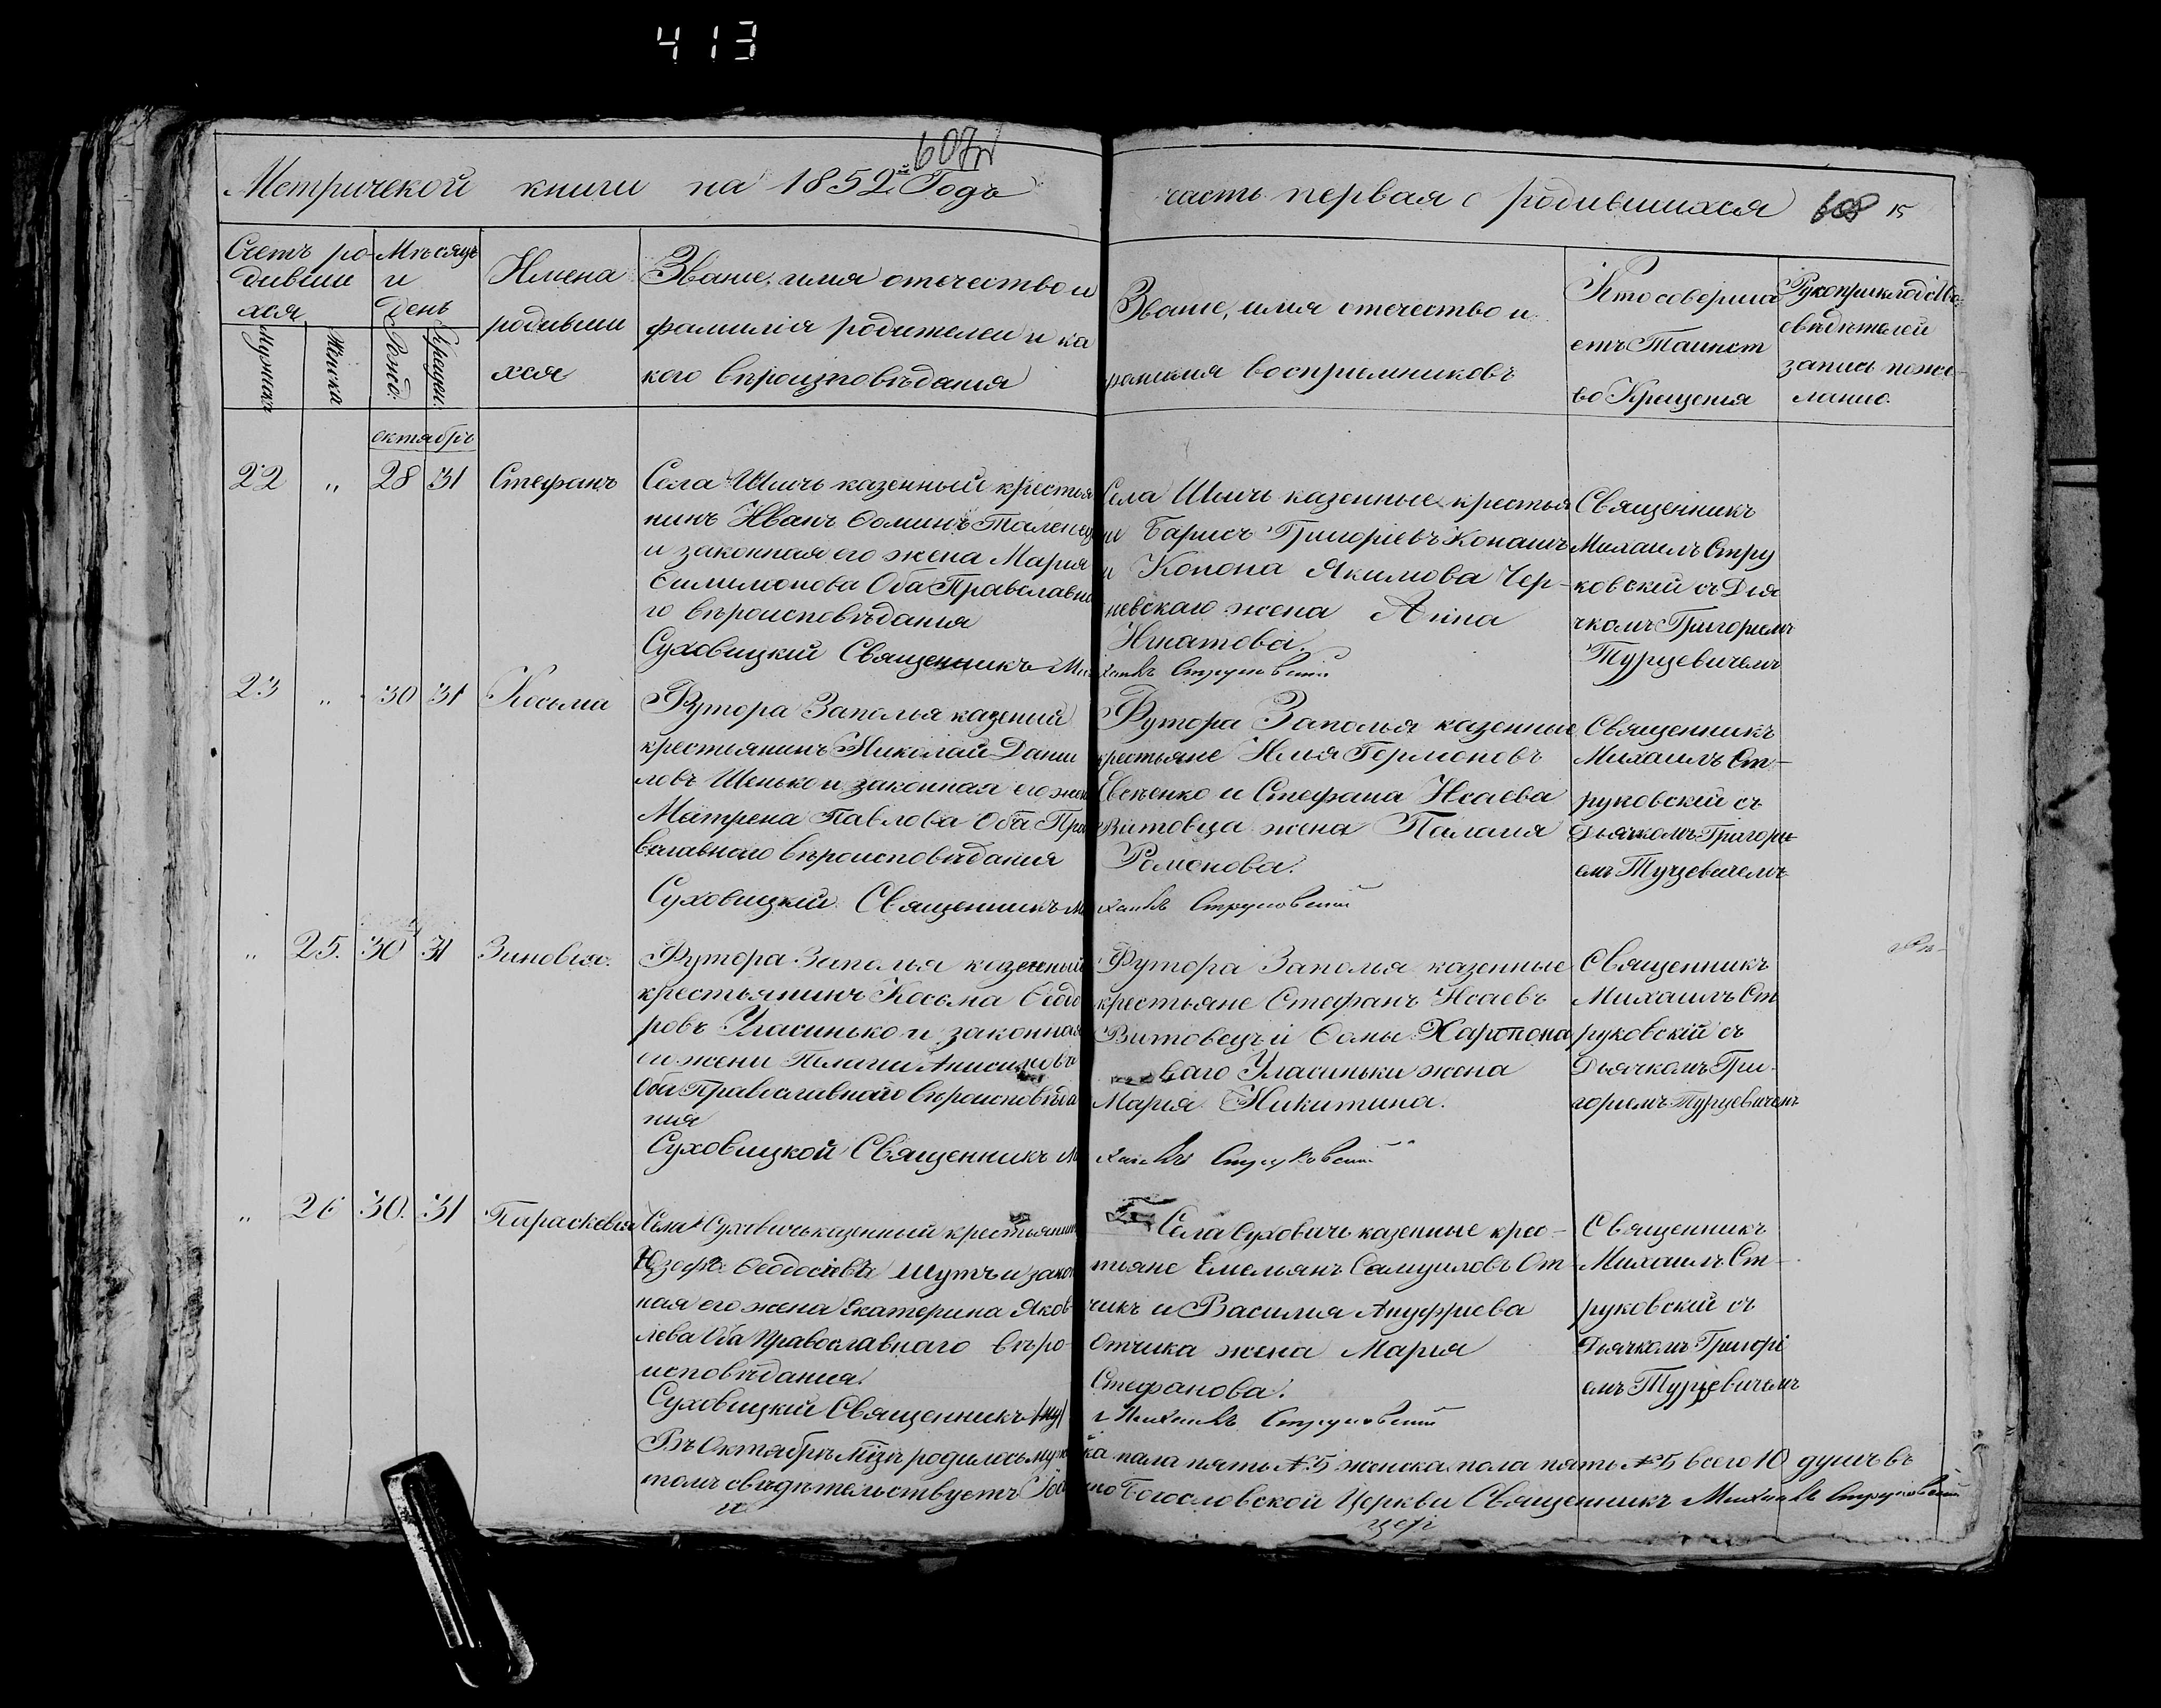 413
607
Метричекой книги на 1852й Годъ
часть первая о родившихся 608 15
Счетъ ро-
дивши
хся
Мужеска
Женска
Мѣсяцъ
и
День
Рожд.
Крещен.
Имена
родивши
хся
Званіе, имя отечество и
фамилія родителей и ка
кого вѣроизповѣданія
Званіе, имя отечество и
фамилия восприемниковъ
Кто соверша
етъ Таинст
во Крещенія
Рукоприкладство
свѣдѣтелей
запись по же-
ланию.
октябрь
22 „ 28 31 Стефанъ
Села Шичь казенный крестья
нинъ Иванъ Ѳоминъ Таленец
и законная его жена Мария
Ѳилимонова Оба Православна
го вѣроисповѣданія
Суховицкий Священникъ Ми
Села Шичь казенные крестья
не Барисъ Григоріевъ Конашъ
и Конона Якимова Чер-
невскаго жена Анна
Игнатова.
хаилъ Струковский
Священникъ
Михаилъ Стру
ковский съ Дья
чкомъ Григориемъ
Турцевичемъ
23 „ 30 31 Косьма
Футора Заполья казений
крестьянинъ Николай Дани
ловъ Шенько и законная его жена
Матрена Павлова Оба Пра
вославного вѣроисповѣдания
Суховицкий Священникъ М
Футора Заполья казенные
крестьяне Илия Гермоновъ
Евсеенко и Стефана Исаева
Витовца жена Палагия
Романова.
хаилъ Струковский
Священникъ
Михаилъ Ст-
руковский съ
Дьячкомъ Григори-
емъ Турцевичемъ
„ 25. 30 31 Зиновия.
Футора Заполья казенный
крестьянинъ Косьма Ѳеодо
ровъ Уласинько и законная
Оба Православного вѣроисповѣда
ния
Суховицкой Священникъ М
Футора Заполья казенные
крестьяне Стефанъ Исаевъ
Витовецъ и Ѳомы Харитона
ваго Уласиньки жена
Мария Никитина.
хаилъ Струковский
Священникъ
Михаилъ Ст
руковский съ
Дьячкомъ Гри-
гориемъ Турцевичемъ
„ 26 30. 31 Параскевия
Села Суховичь казенный крестьянинъ
Юзефъ Ѳеодосиевъ Шутъ и закон
ная его жена Екатерина Яков
лева Оба Православнаго вѣро-
исповѣдания.
Суховицкий Священникъ
Села Суховичь казенные крес-
тьяне Емельянъ Самуиловъ От
чикъ и Василия Ануфриева
Отчика жена Мария
Стефанова.
Михаилъ Струковский
Священникъ
Михаилъ Ст-
руковский съ
Дьячкомъ Григорі
емъ Турцевичемъ
Въ Октябрѣ мцѣ родилось мужска пола пять №5 женска пола пять №5 всего 10 душъ въ
томъ свѣдѣтельствуетъ Іоанно Богословской Церкви Священникъ Михаилъ Струковский